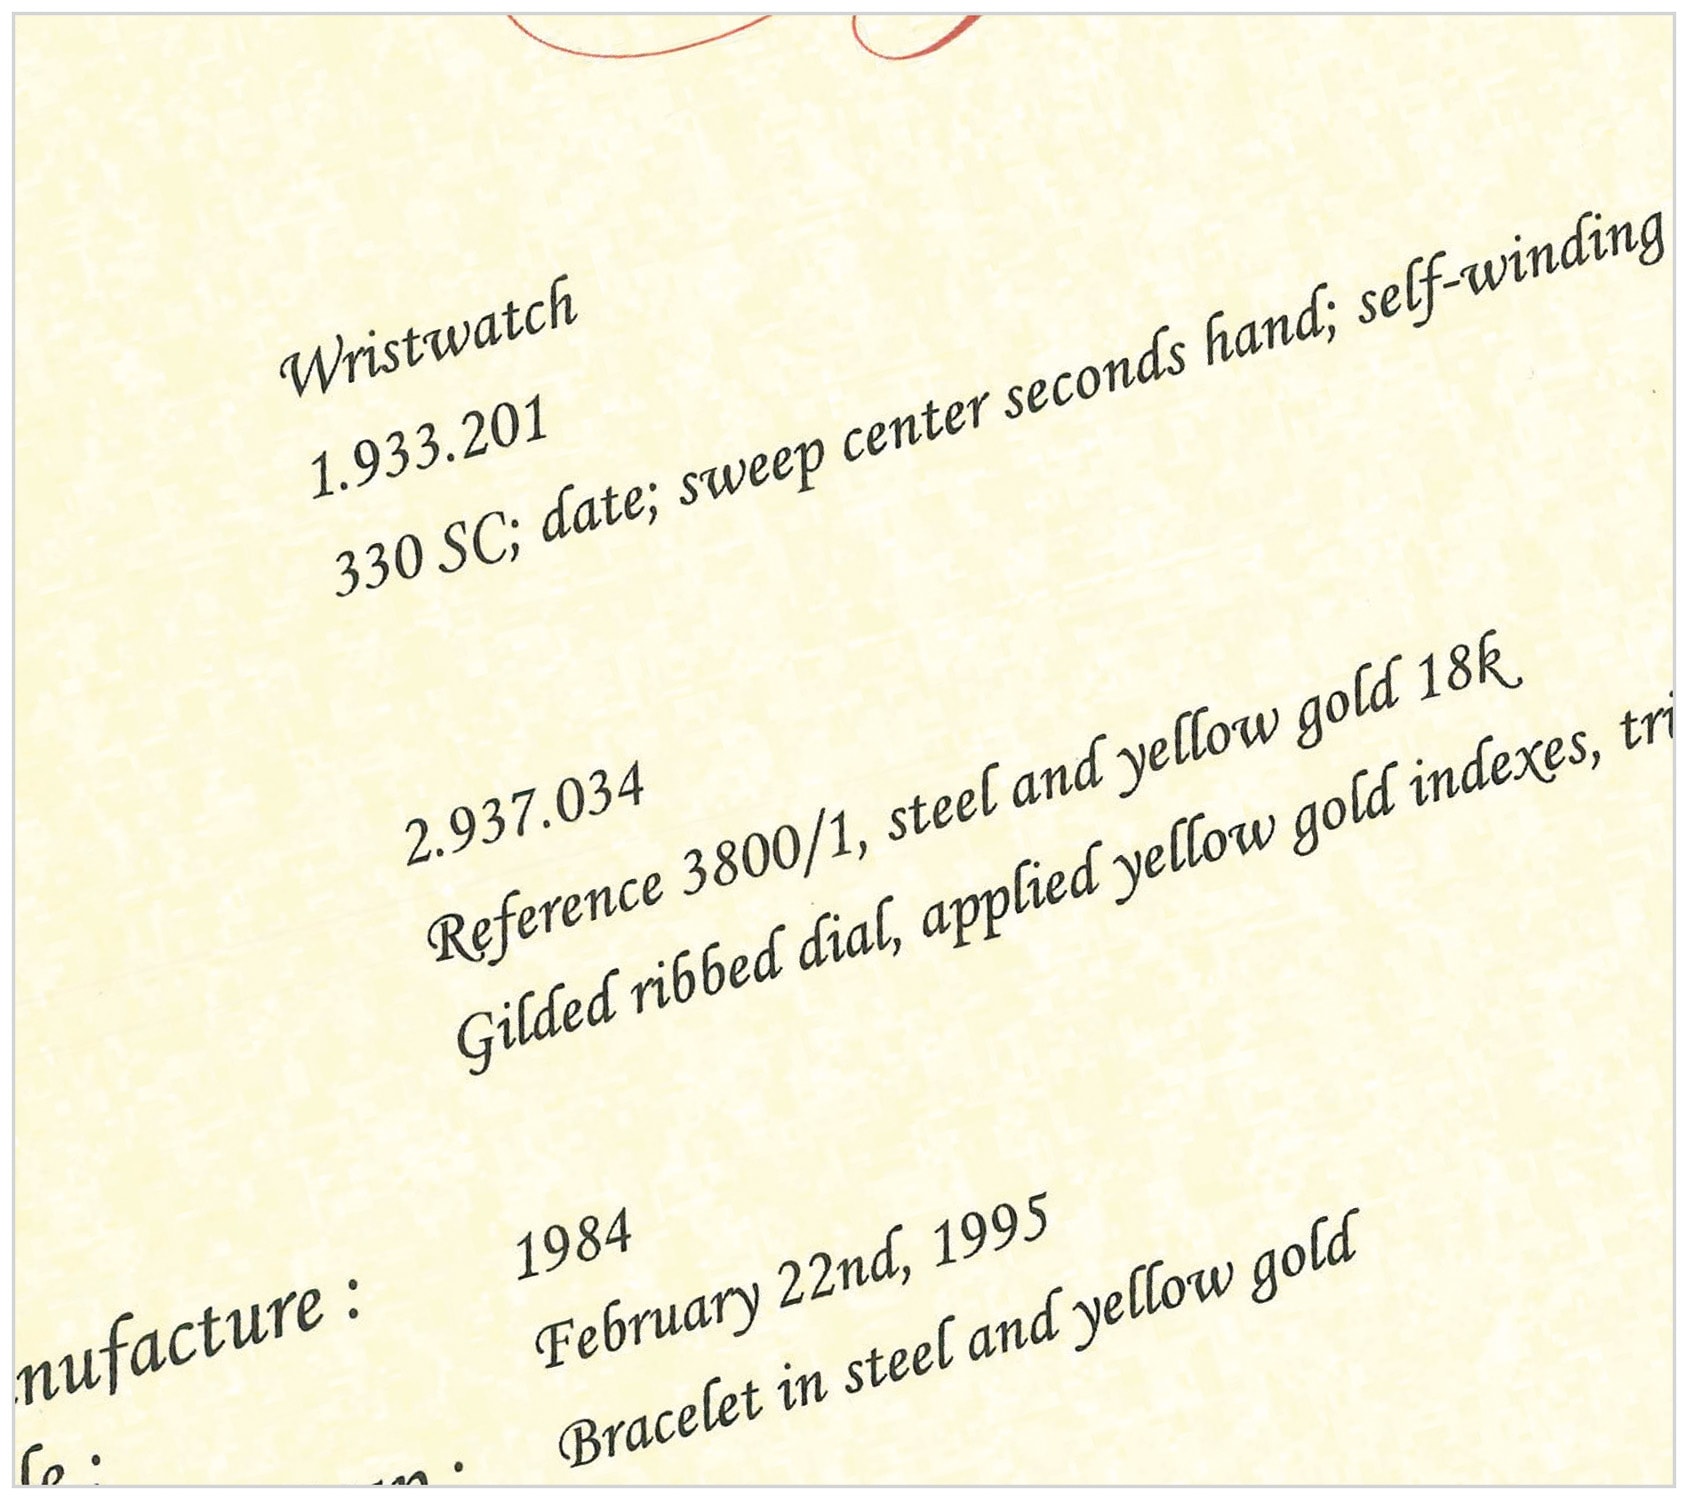 Wristwatch
1.933.201
330 SC; date; sweep center seconds hand; self-winding
2.937.034
Reference 3800/1, steel and yellow gold 18k
Gilded ribbed dial, applied yellow gold indexes, tri
nufacture : 1984
le : February 22nd, 1995
Bracelet in steel and yellow gold